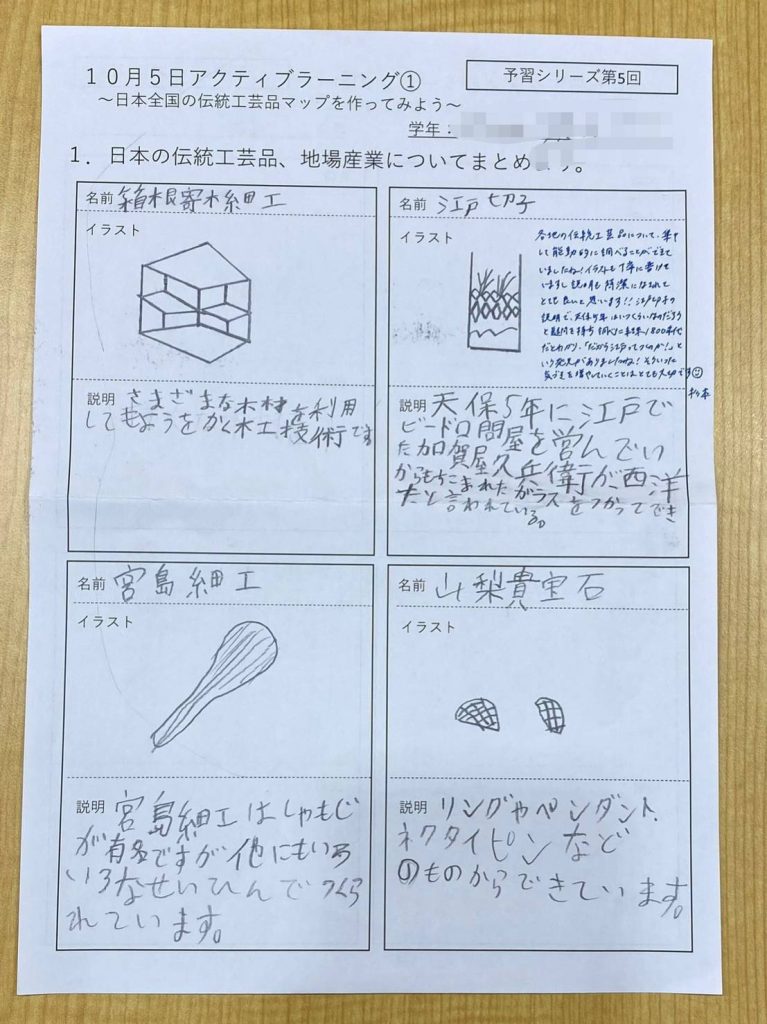 10月5日アクティブラーニング①
予習シリーズ第5回
～日本全国の伝統工芸品マップを作ってみよう～
学年：
1. 日本の伝統工芸品、地場産業についてまとめ
す。
名前 箱根寄木細工
イラスト
説明 さまざまな木材を利用
してもようをかく木工技術です
名前 江戸切子
イラスト
各地の伝統工芸品について、集中
して能動的に調べることができて
いましたね!イラストも丁寧に書けて
いますし説明も簡潔になされて
とても良いと思います!!江戸切子の
説明で、天保5年はいつくらいなのだろう
と疑問を持ち調べた結果、1800年代
だとわかり、「だから江戸ってつくのか!」と
いう発見がありましたね!そういった
気づきを増やしていくことはとても大切です
説明 天保5年に江戸で
ビードロ問屋を営んでい
た加賀屋久兵衛が、西洋
からもちこまれたガラスをつかってでき
たと言われている。
名前 宮島細工
イラスト
説明 宮島細工はしゃもじ
が有名ですが他にもいろ
いろなせいひんでつくら
れています。
名前 山梨貴宝石
イラスト
説明 リングやペンダント、
ネクタイピンなど
のものからできています。